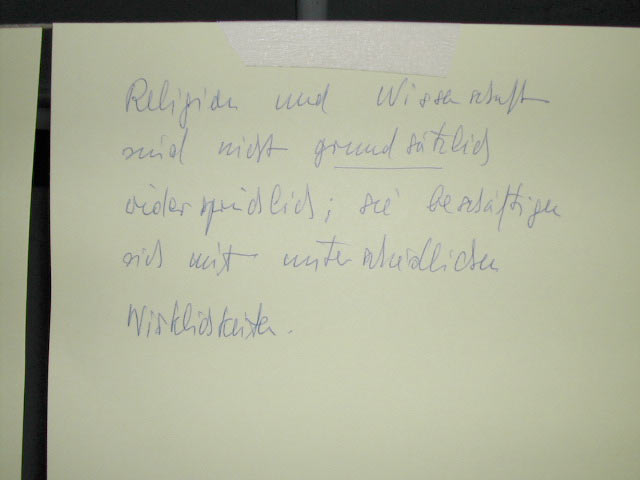 Religion und Wissenschaft
sind nicht grundsätzlich
widersprüchlich; sie beschäftigen
sich mit unterschiedlichen
Wirklichkeiten.